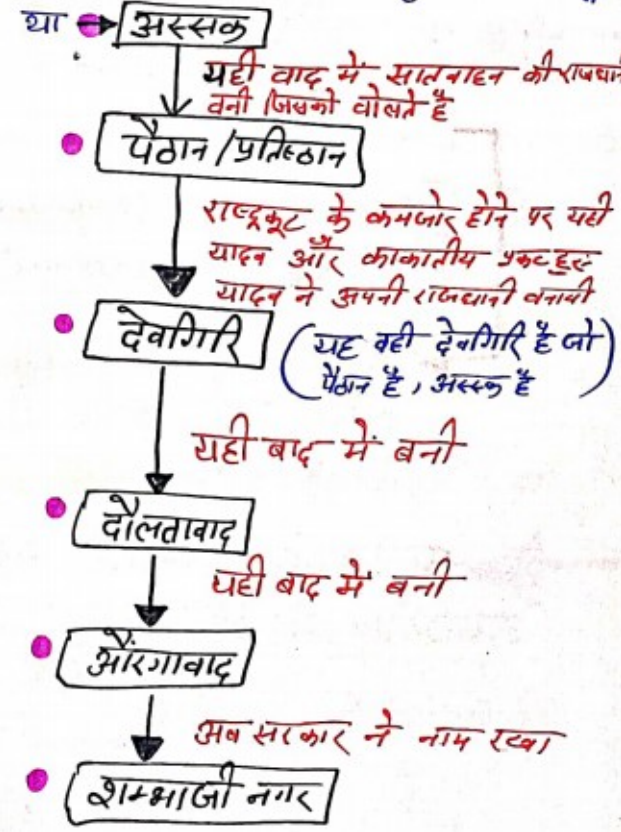 था अस्सक
यही वाद में सातवाहन की राजधानी
वनी जिसको वोलते है
पैठान / प्रतिष्ठान
राष्ट्रकूट के कमजोर होने पर यही
यादव और काकातीय प्रकट हुए
यादव ने अपनी राजधानी वनायी
देवगिरि
(यह वही देवगिरि है जो
पैठान है, अस्सक है)
यही बाद में बनी
दौलतावाद
यही बाद में बनी
औरंगावाद
अब सरकार ने नाम रखा
शम्भाजी नगर